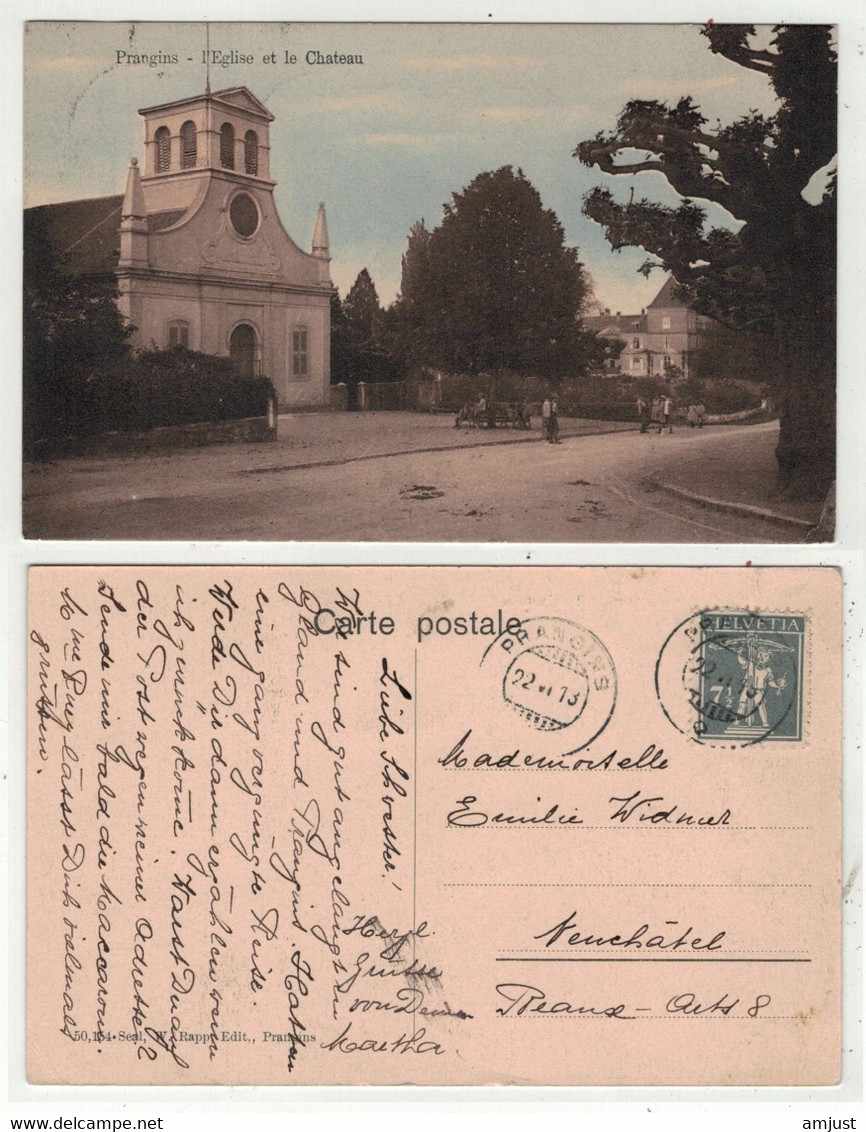 Prangins - l'Eglise et le Chateau
Carte postale
PRANGINS
22 VI 13
HELVETIA
7½
22 VI 13
Liebe Schwester!
Wir sind gut angelangt in
Gland und Prangins. Hatten
eine ganz vergnügte Reise.
Werde Dir dann erzählen wenn
ich zurückkome. Warst Du auf
der Post wegen meiner Adresse?
Sende mir bald die Maccaroni.
Mme Puez lässt Dich vielmals
grüssen.
Herzl.
Grüsse
von Deiner
Martha
Mademoiselle
Emilie Widmer
Neuchâtel
Beaux-Arts 8
50,154 Seal, W. Rapp, Edit., Prangins
www.delcampe.net
amjust